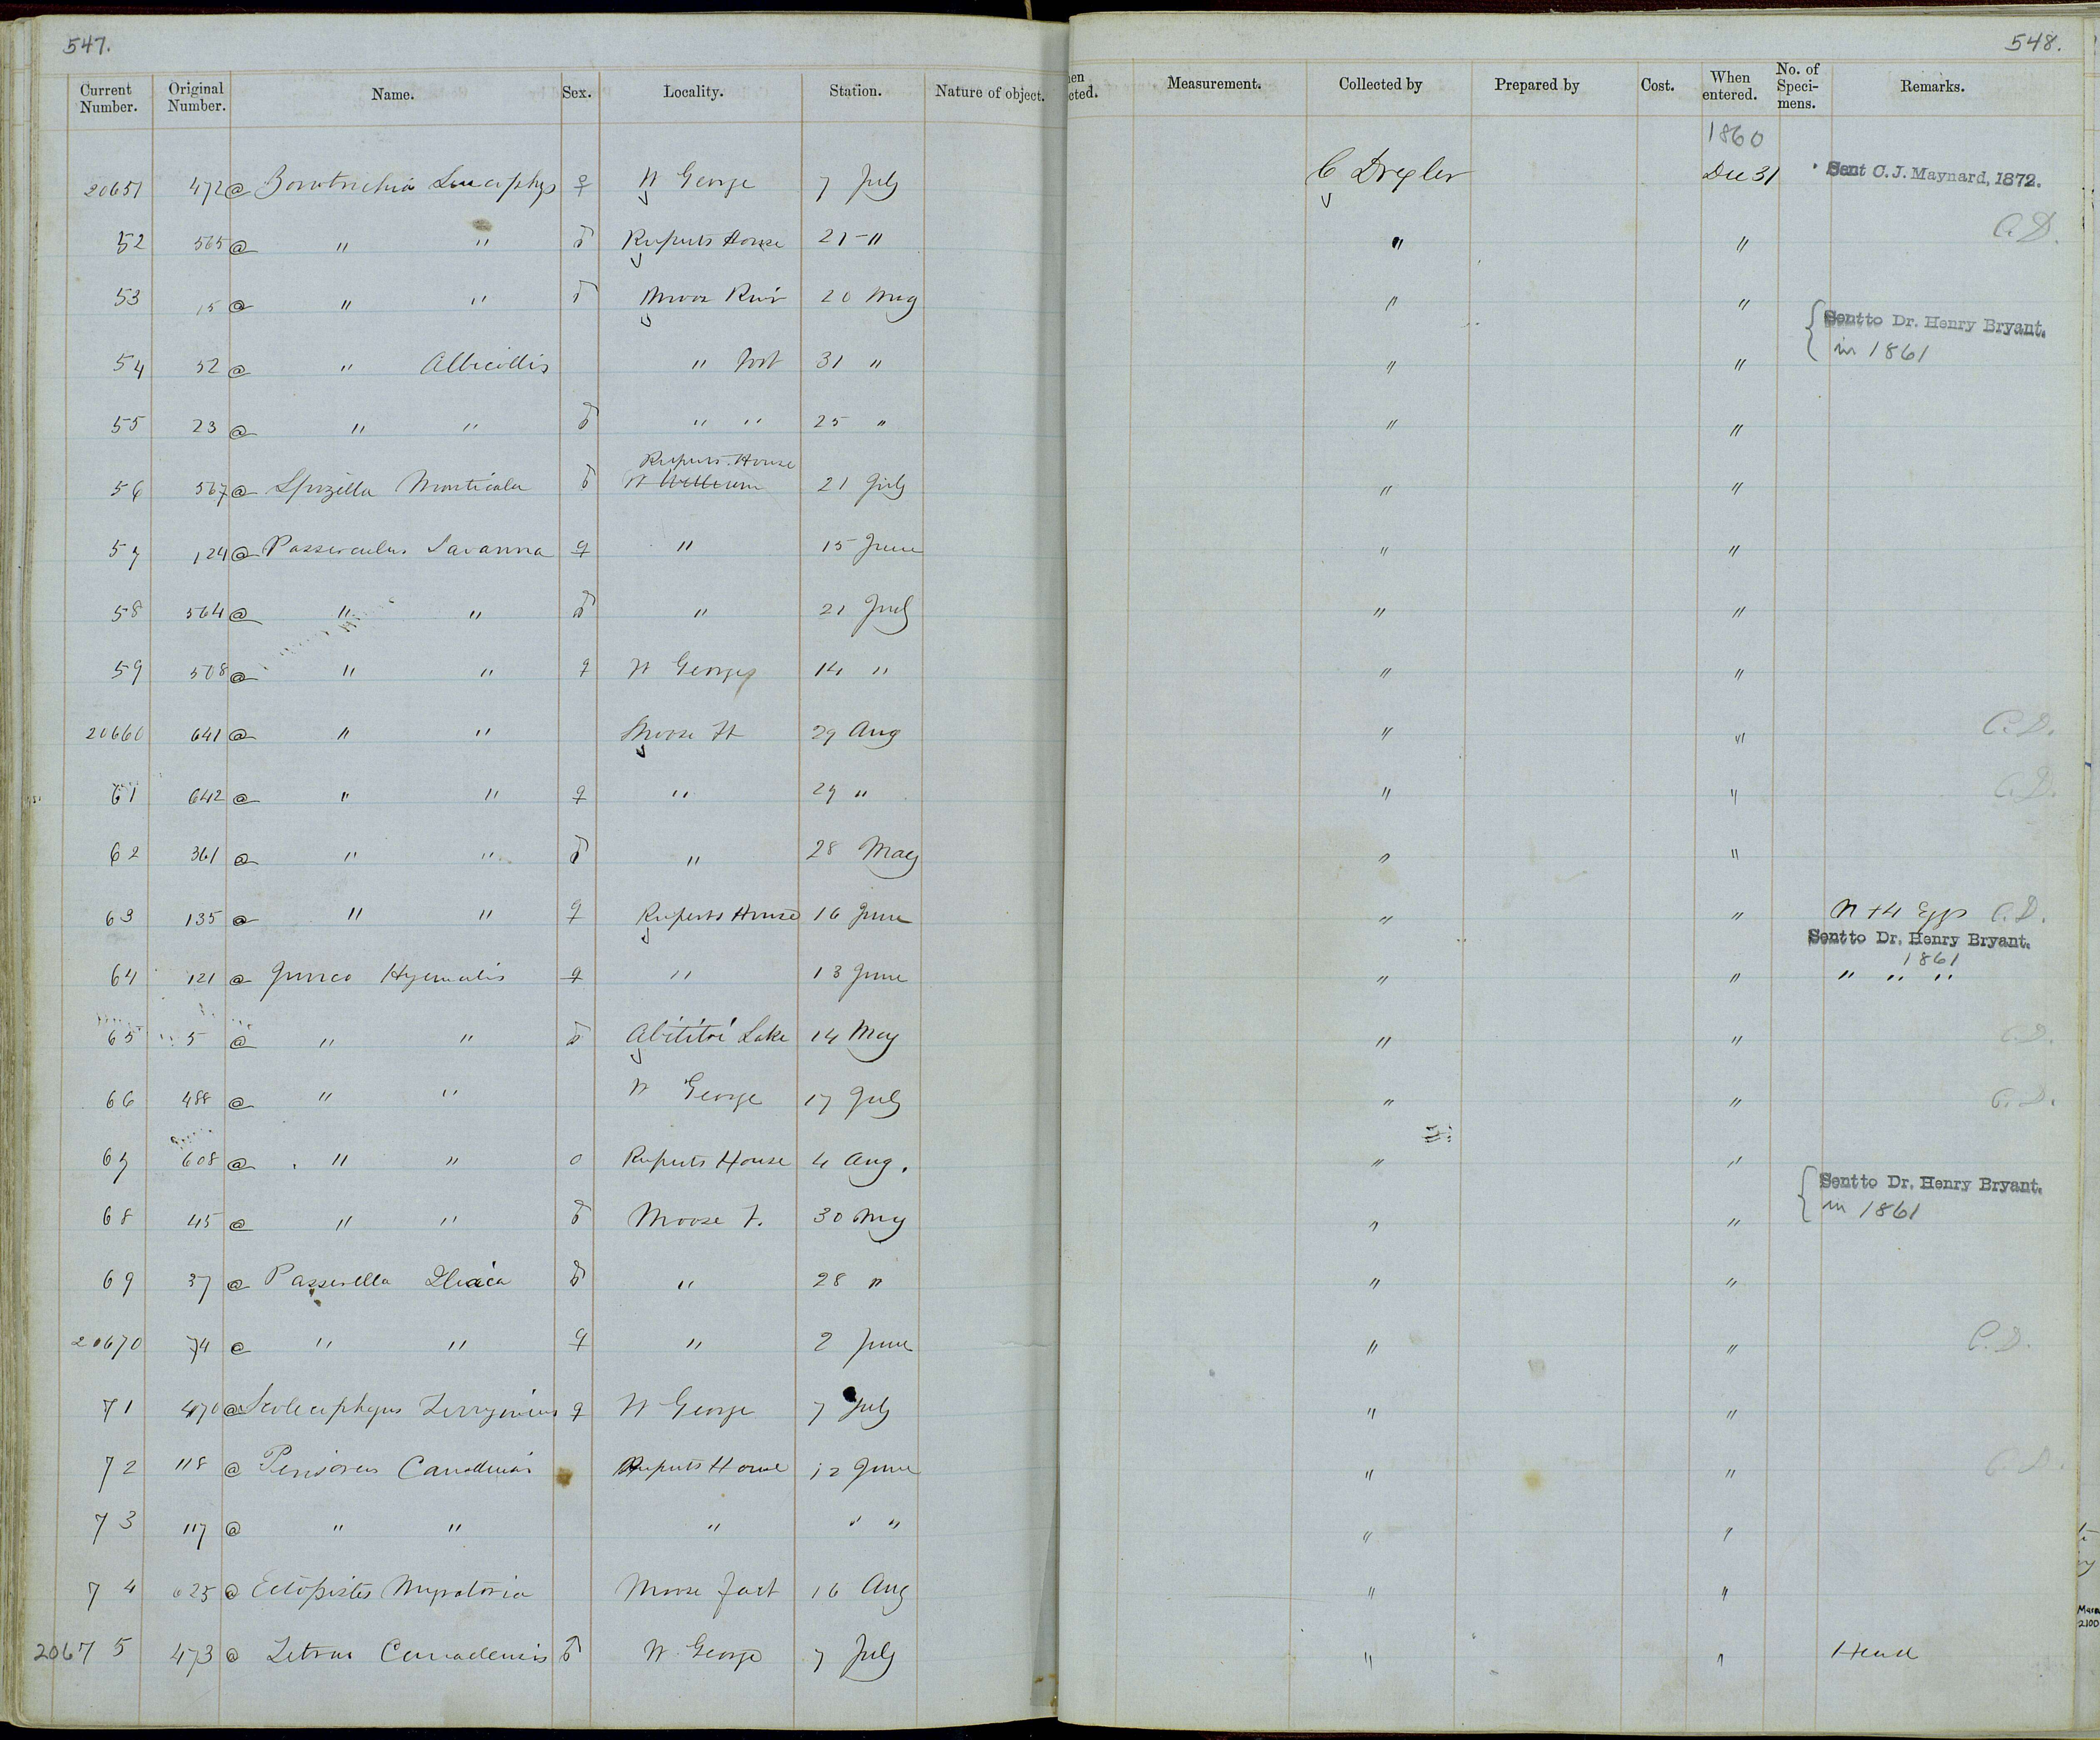 547.
548.
Current Number. Original Number. Name. Sex. Locality. Station. Nature of object. hen cted. Measurement. Collected by Prepared by Cost. When entered. No. of Speci- mens. Remarks.
1860
20651 472 @ ♀ Ft George 7 July C Drexler Dec 31 Sent C. J. Maynard, 1872.
52 565 @ " " ♂ Ruperts House 21 - " " " C.D.
53 15 @ " " ♂ Moose River 20 May " "
{ Sent to Dr. Henry Bryant. in 1861
54 52 @ " Albicollis " Fort 31 " " "
55 23 @ " " ♂ " " 25 " " "
Ruperts House
56 567 @ Spizella Monticola ♂ Ft William 21 July " "
57 124 @ Passerculus Savanna ♀ " 15 June " "
58 564 @ " " ♂ " 21 July " "
59 508 @ " " ♀ Ft George 14 " " "
20660 641 @ " " Moose Ft 29 Aug " " C.D.
61 642 @ " " ♀ " 29 " " " C.D.
62 361 @ " " ♂ " 28 May " "
63 135 @ " " ♀ Ruperts House 16 June " " N + 4 Eggs C.D.
Sent to Dr. Henry Bryant. 1861
64 121 @ Junco Hyemalis ♀ " 13 June " " " " "
65 5 @ " " ♂ Abititi Lake 14 May " " C.D.
66 488 @ " " Ft George 17 July " " C.D.
67 608 @ " " o Ruperts House 4 Aug. " "
{ Sent to Dr. Henry Bryant. in 1861
68 45 @ " " ♂ Moose F. 30 May " "
69 37 @ Passerella Iliaca ♂ " 28 " " "
20670 74 @ " " ♀ " 2 June " " C.D.
71 470 @ Scolecophagus Ferrugineus ♀ Ft George 7 July " "
72 118 @ Perisoreus Canadensis Ruperts House 12 June " " C.D.
73 117 @ " " " " " " "
74 625 @ Ectopistes Migratoria Moose Fort 16 Aug " "
20675 473 @ Tetrao Canadensis ♂ Ft George 7 July " " Head